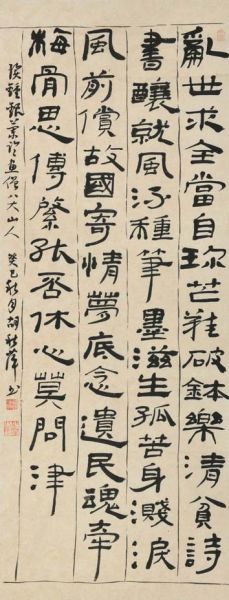 亂世求全當自珍芒鞋破鉢樂清貧詩
書釀就風流種筆墨滋生孤苦身濺淚
風前償故國寄情夢底念遺民魂牽
梅骨思傳否休心莫問津
畫僧八大山人 癸巳秋月胡秋萍書